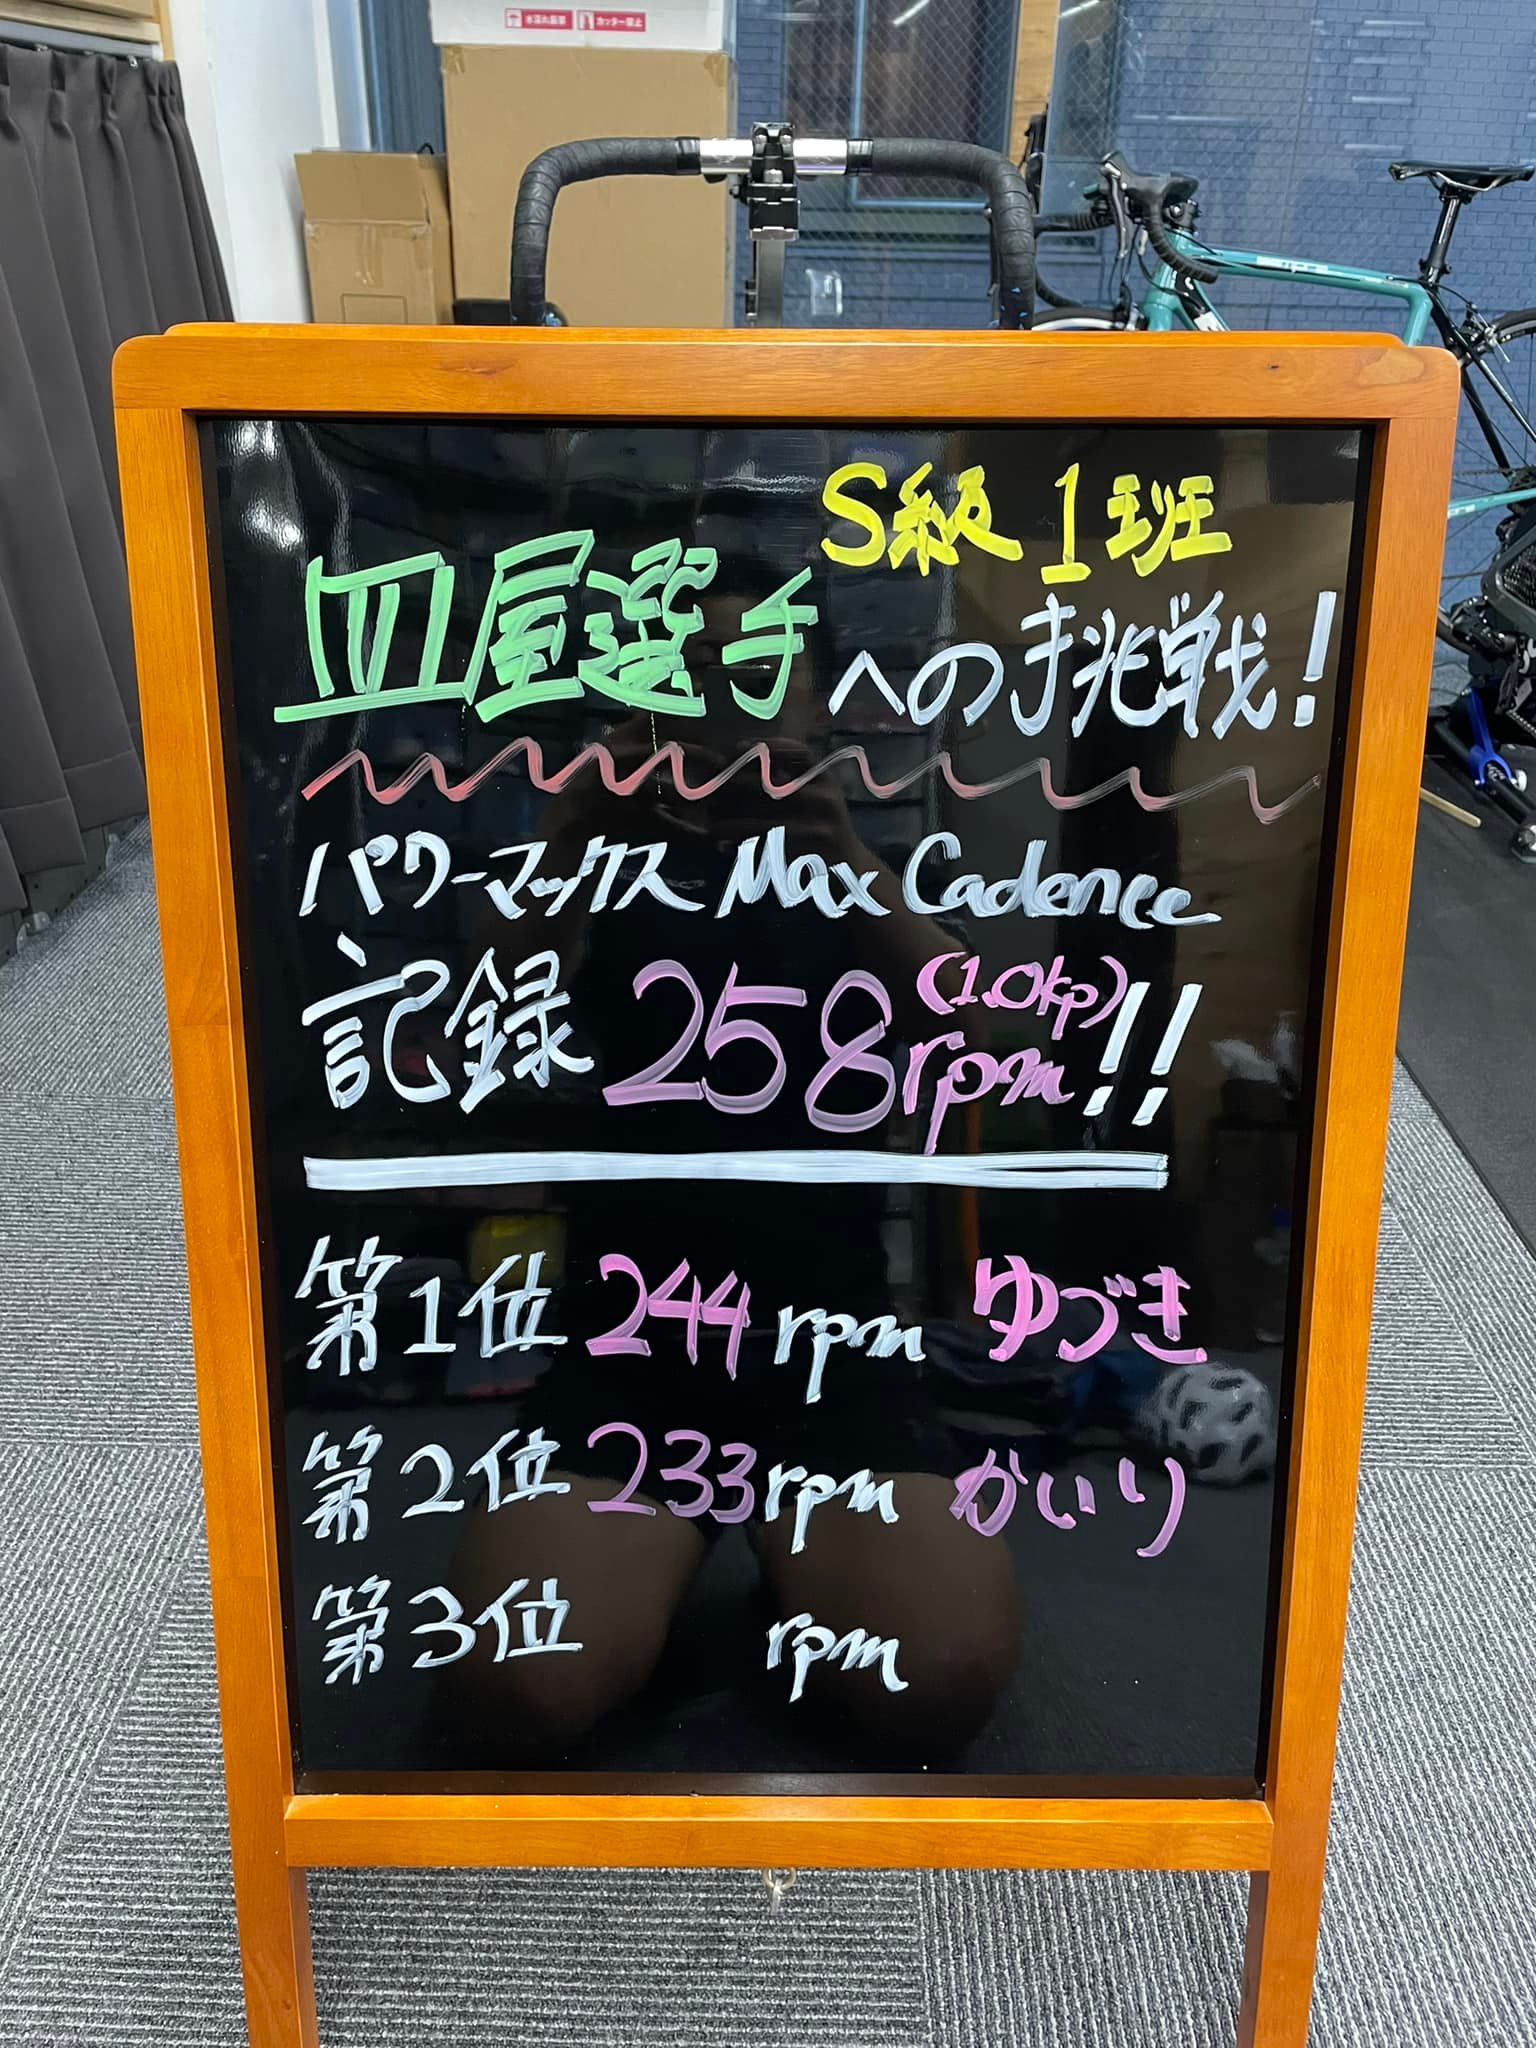 水濡れ厳禁 カッター禁止
S級1班
皿屋選手への挑戦!
パワーマックス Max Cadence
記録 258rpm(1.0kp)!!
第1位 244rpm ゆづき
第2位 233rpm かいり
第3位 rpm